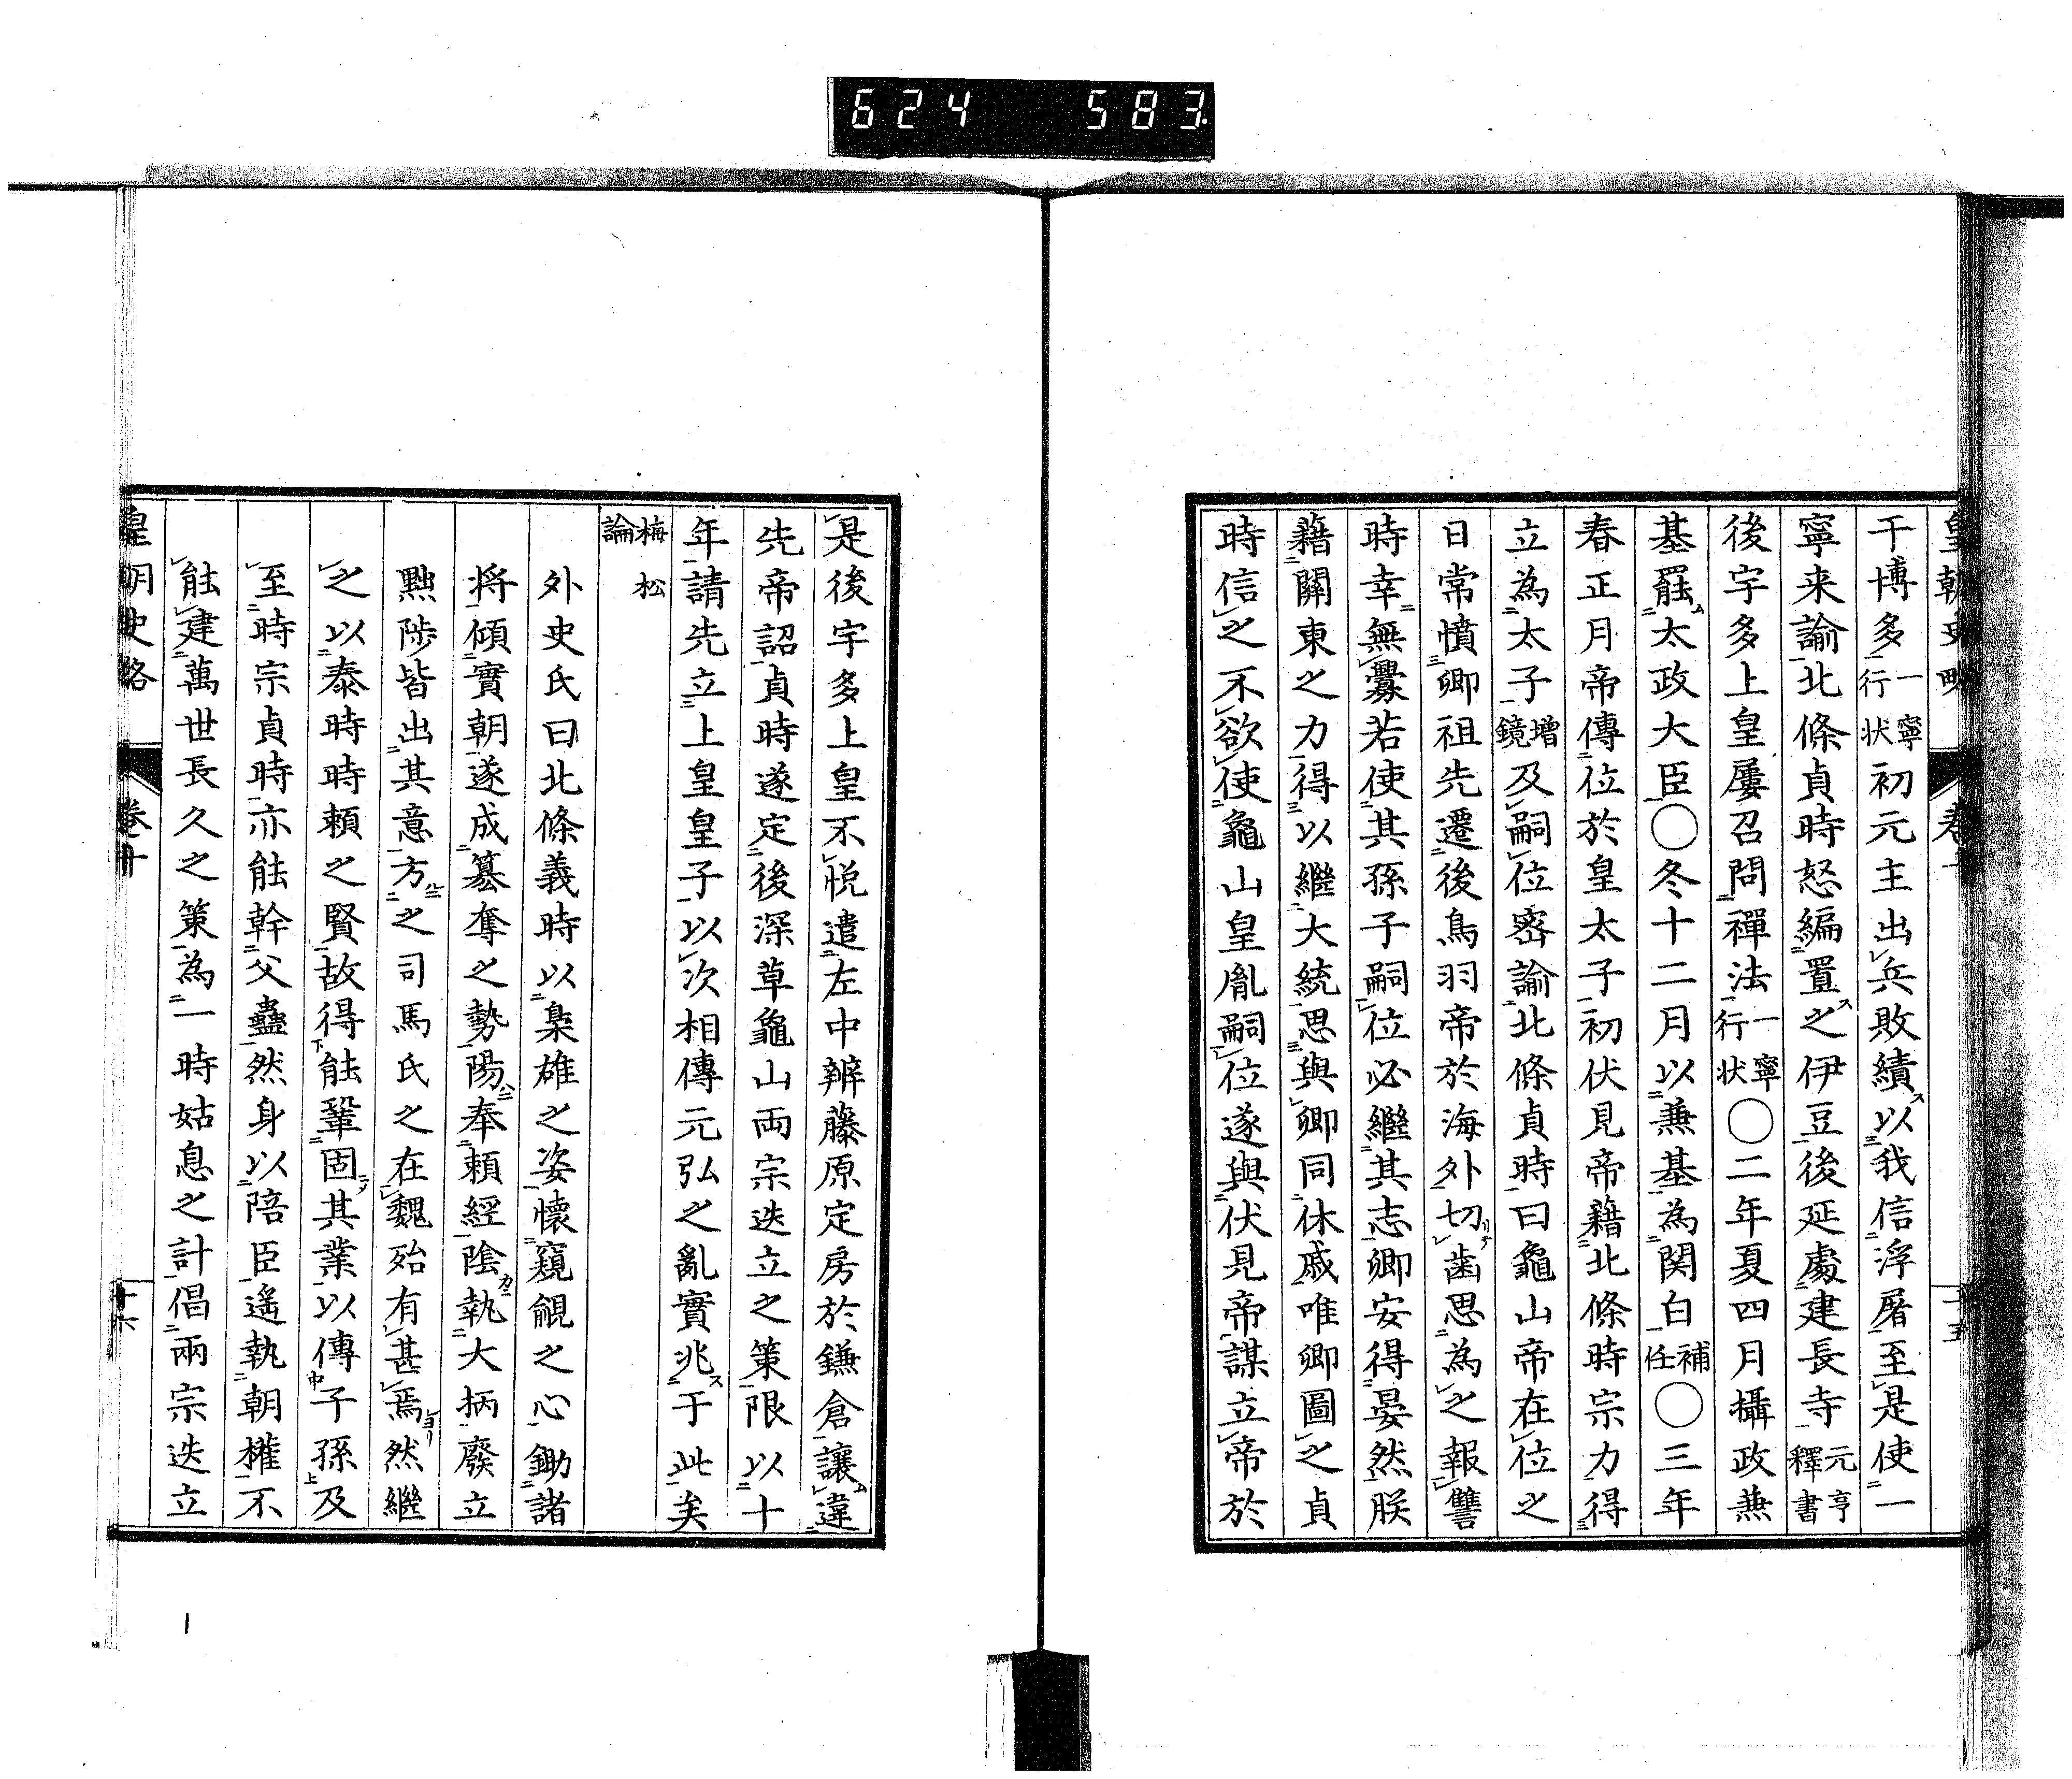 624 583
皇朝史略 卷十 十五
干博多一寧行状初元主出兵敗績以我信浮屠至是使一
寧来諭北條貞時怒編置之伊豆後延處建長寺元亨釋書
後宇多上皇屢召問禪法一寧行状〇二年夏四月攝政兼
基罷太政大臣〇冬十二月以兼基為関白補任〇三年
春正月帝傳位於皇太子初伏見帝藉北條時宗力得
立為太子增鏡及嗣位密諭北條貞時曰龜山帝在位之
日常憤卿祖先遷後鳥羽帝於海外切齒思為之報讐
時幸無釁若使其孫子嗣位必繼其志卿安得晏然朕
藉關東之力得以繼大統思與卿同休戚唯卿圖之貞
時信之不欲使龜山皇胤嗣位遂與伏見帝謀立帝於
是後宇多上皇不悦遣左中辨藤原定房於鎌倉讓違
先帝詔貞時遂定後深草龜山両宗迭立之策限以十
年請先立上皇皇子以次相傳元弘之亂實兆于此矣
梅松論
外史氏曰北條義時以梟雄之姿懷窺覦之心鋤諸
将傾實朝遂成簒奪之勢陽奉頼經陰執大柄廢立
黜陟皆出其意方之司馬氏之在魏殆有甚焉然繼
之以泰時時頼之賢故得能鞏固其業以傳子孫及
至時宗貞時亦能幹父蠱然身以陪臣遙執朝權不
能建萬世長久之策為一時姑息之計倡兩宗迭立
皇朝史略 卷十 十六